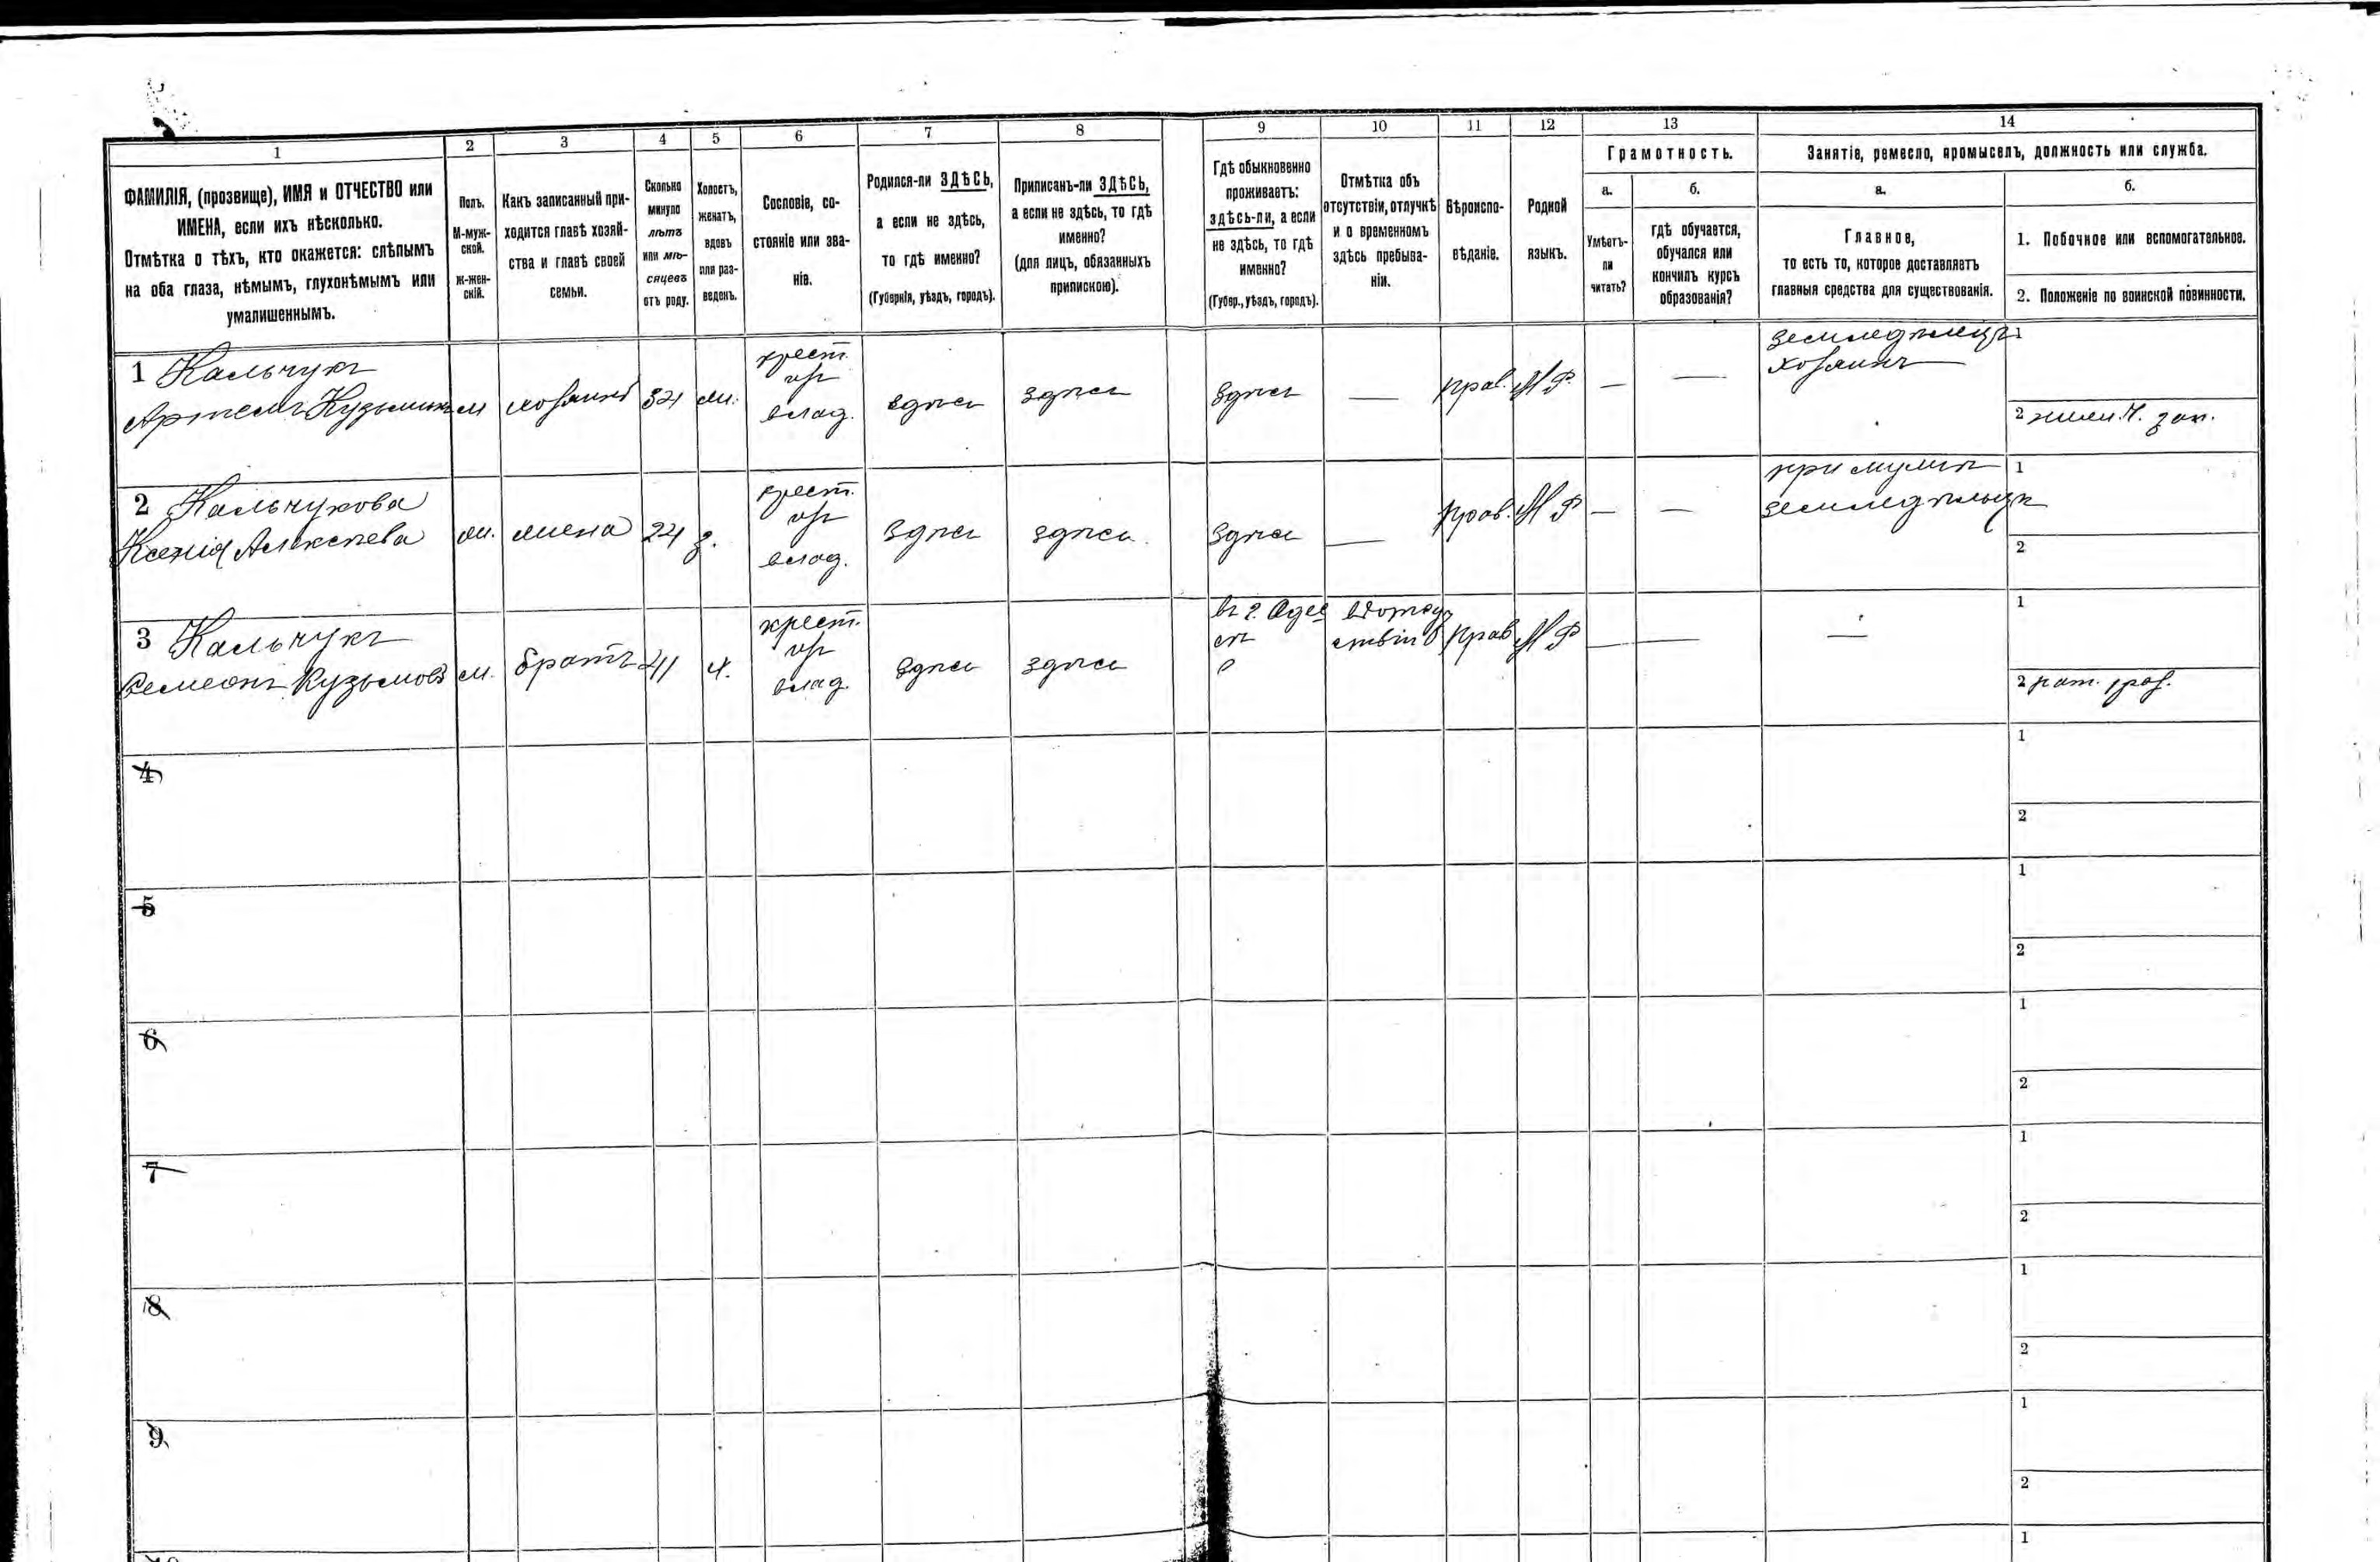 1 2 3 4 5 6 7 8 9 10 11 12 13 14
ФАМИЛІЯ, (прозвище), ИМЯ и ОТЧЕСТВО или
ИМЕНА, если ихъ нѣсколько.
Отмѣтка о тѣхъ, кто окажется: слѣпымъ
на оба глаза, нѣмымъ, глухонѣмымъ или
умалишеннымъ.
Полъ.
М-муж-
ской.
ж-жен-
скій.
Какъ записанный при-
ходится главѣ хозяй-
ства и главѣ своей
семьи.
Сколько
минуло
лѣтъ
или мѣ-
сяцевъ
отъ роду.
Холостъ,
женатъ,
вдовъ
или раз-
веденъ.
Сословіе, со-
стояніе или зва-
ніе.
Родился-ли ЗДѢСЬ,
а если не здѣсь,
то гдѣ именно?
(Губернія, уѣздъ, городъ).
Приписанъ-ли ЗДѢСЬ,
а если не здѣсь, то гдѣ
именно?
(для лицъ, обязанныхъ
припискою).
Гдѣ обыкновенно
проживаетъ:
здѣсь-ли, а если
не здѣсь, то гдѣ
именно?
(Губер., уѣздъ, городъ).
Отмѣтка объ
отсутствіи, отлучкѣ
и о временномъ
здѣсь пребыва-
ніи.
Вѣроиспо-
вѣданіе.
Родной
языкъ.
Грамотность.
а.
Умѣетъ-
ли
читать?
б.
гдѣ обучается,
обучался или
кончилъ курсъ
образованія?
Занятіе, ремесло, промыселъ, должность или служба.
а.
Главное,
то есть то, которое доставляетъ
главныя средства для существованія.
б.
1. Побочное или вспомогательное.
2. Положеніе по воинской повинности.
1 Кальчукъ
Артемъ Кузьминъ
м
хозяинъ
крест.
влад.
здѣсь
здѣсь
здѣсь
—
прав.
—
—
земледѣлецъ
хозяинъ
1
2
2 Кальчукова
Ксенія Алексѣева
жена
24
з.
крест.
влад.
здѣсь
здѣсь
здѣсь
—
прав.
—
—
при мужѣ
земледѣльцѣ
1
2
3 Кальчукъ
Семеонъ Кузьмовъ
м.
братъ
41
крест.
влад.
здѣсь
здѣсь
въ г. Одес
сѣ
прав
—
—
—
1
2
4
1
2
5
1
2
6
1
2
7
1
2
8
1
2
9
1
2
1